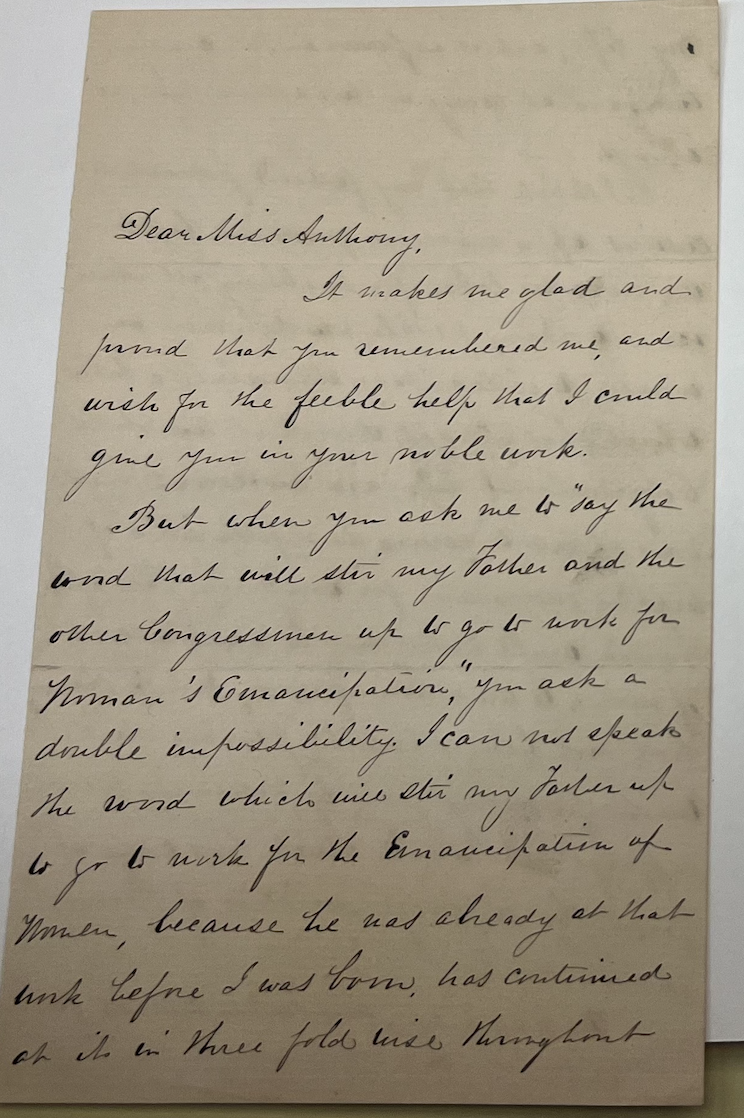 Dear Miss Anthony,
It makes me glad and
proud that you remembered me, and
wish for the feeble help that I could
give you in your noble work.
But when you ask me to "say the
word that will stir my Father and the
other Congressmen up to go to work for
Woman's Emancipation," you ask a
double impossibility. I can not speak
the word which will stir my Father up
to go to work for the Emancipation of
Women, because he was already at that
work before I was born, has continued
at it in three fold wise throughout